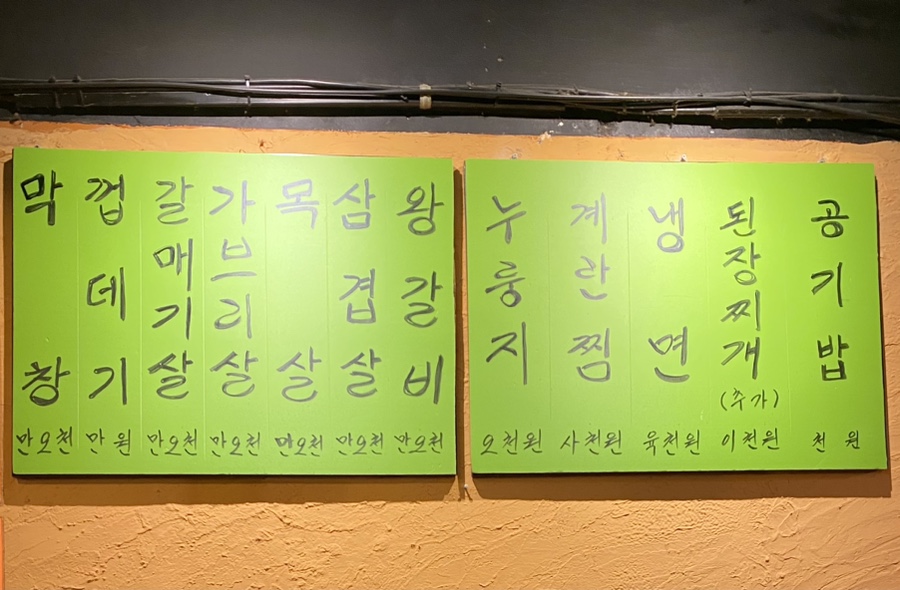 막창 만오천
껍데기 만원
갈매기살 만오천
가브리살 만오천
목살 만오천
삼겹살 만오천
왕갈비 만오천
누룽지 오천원
계란찜 사천원
냉면 육천원
된장찌개 (추가) 이천원
공기밥 천원